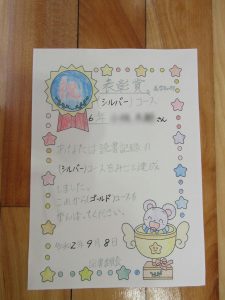 表彰賞
(シルバー)コース
6年 さん
あなたは読書記録の
(シルバー)コースをみごと達成
しました。
これからも(ゴールド)コースを
がんばってください。
令和2年9月8日
図書委員会